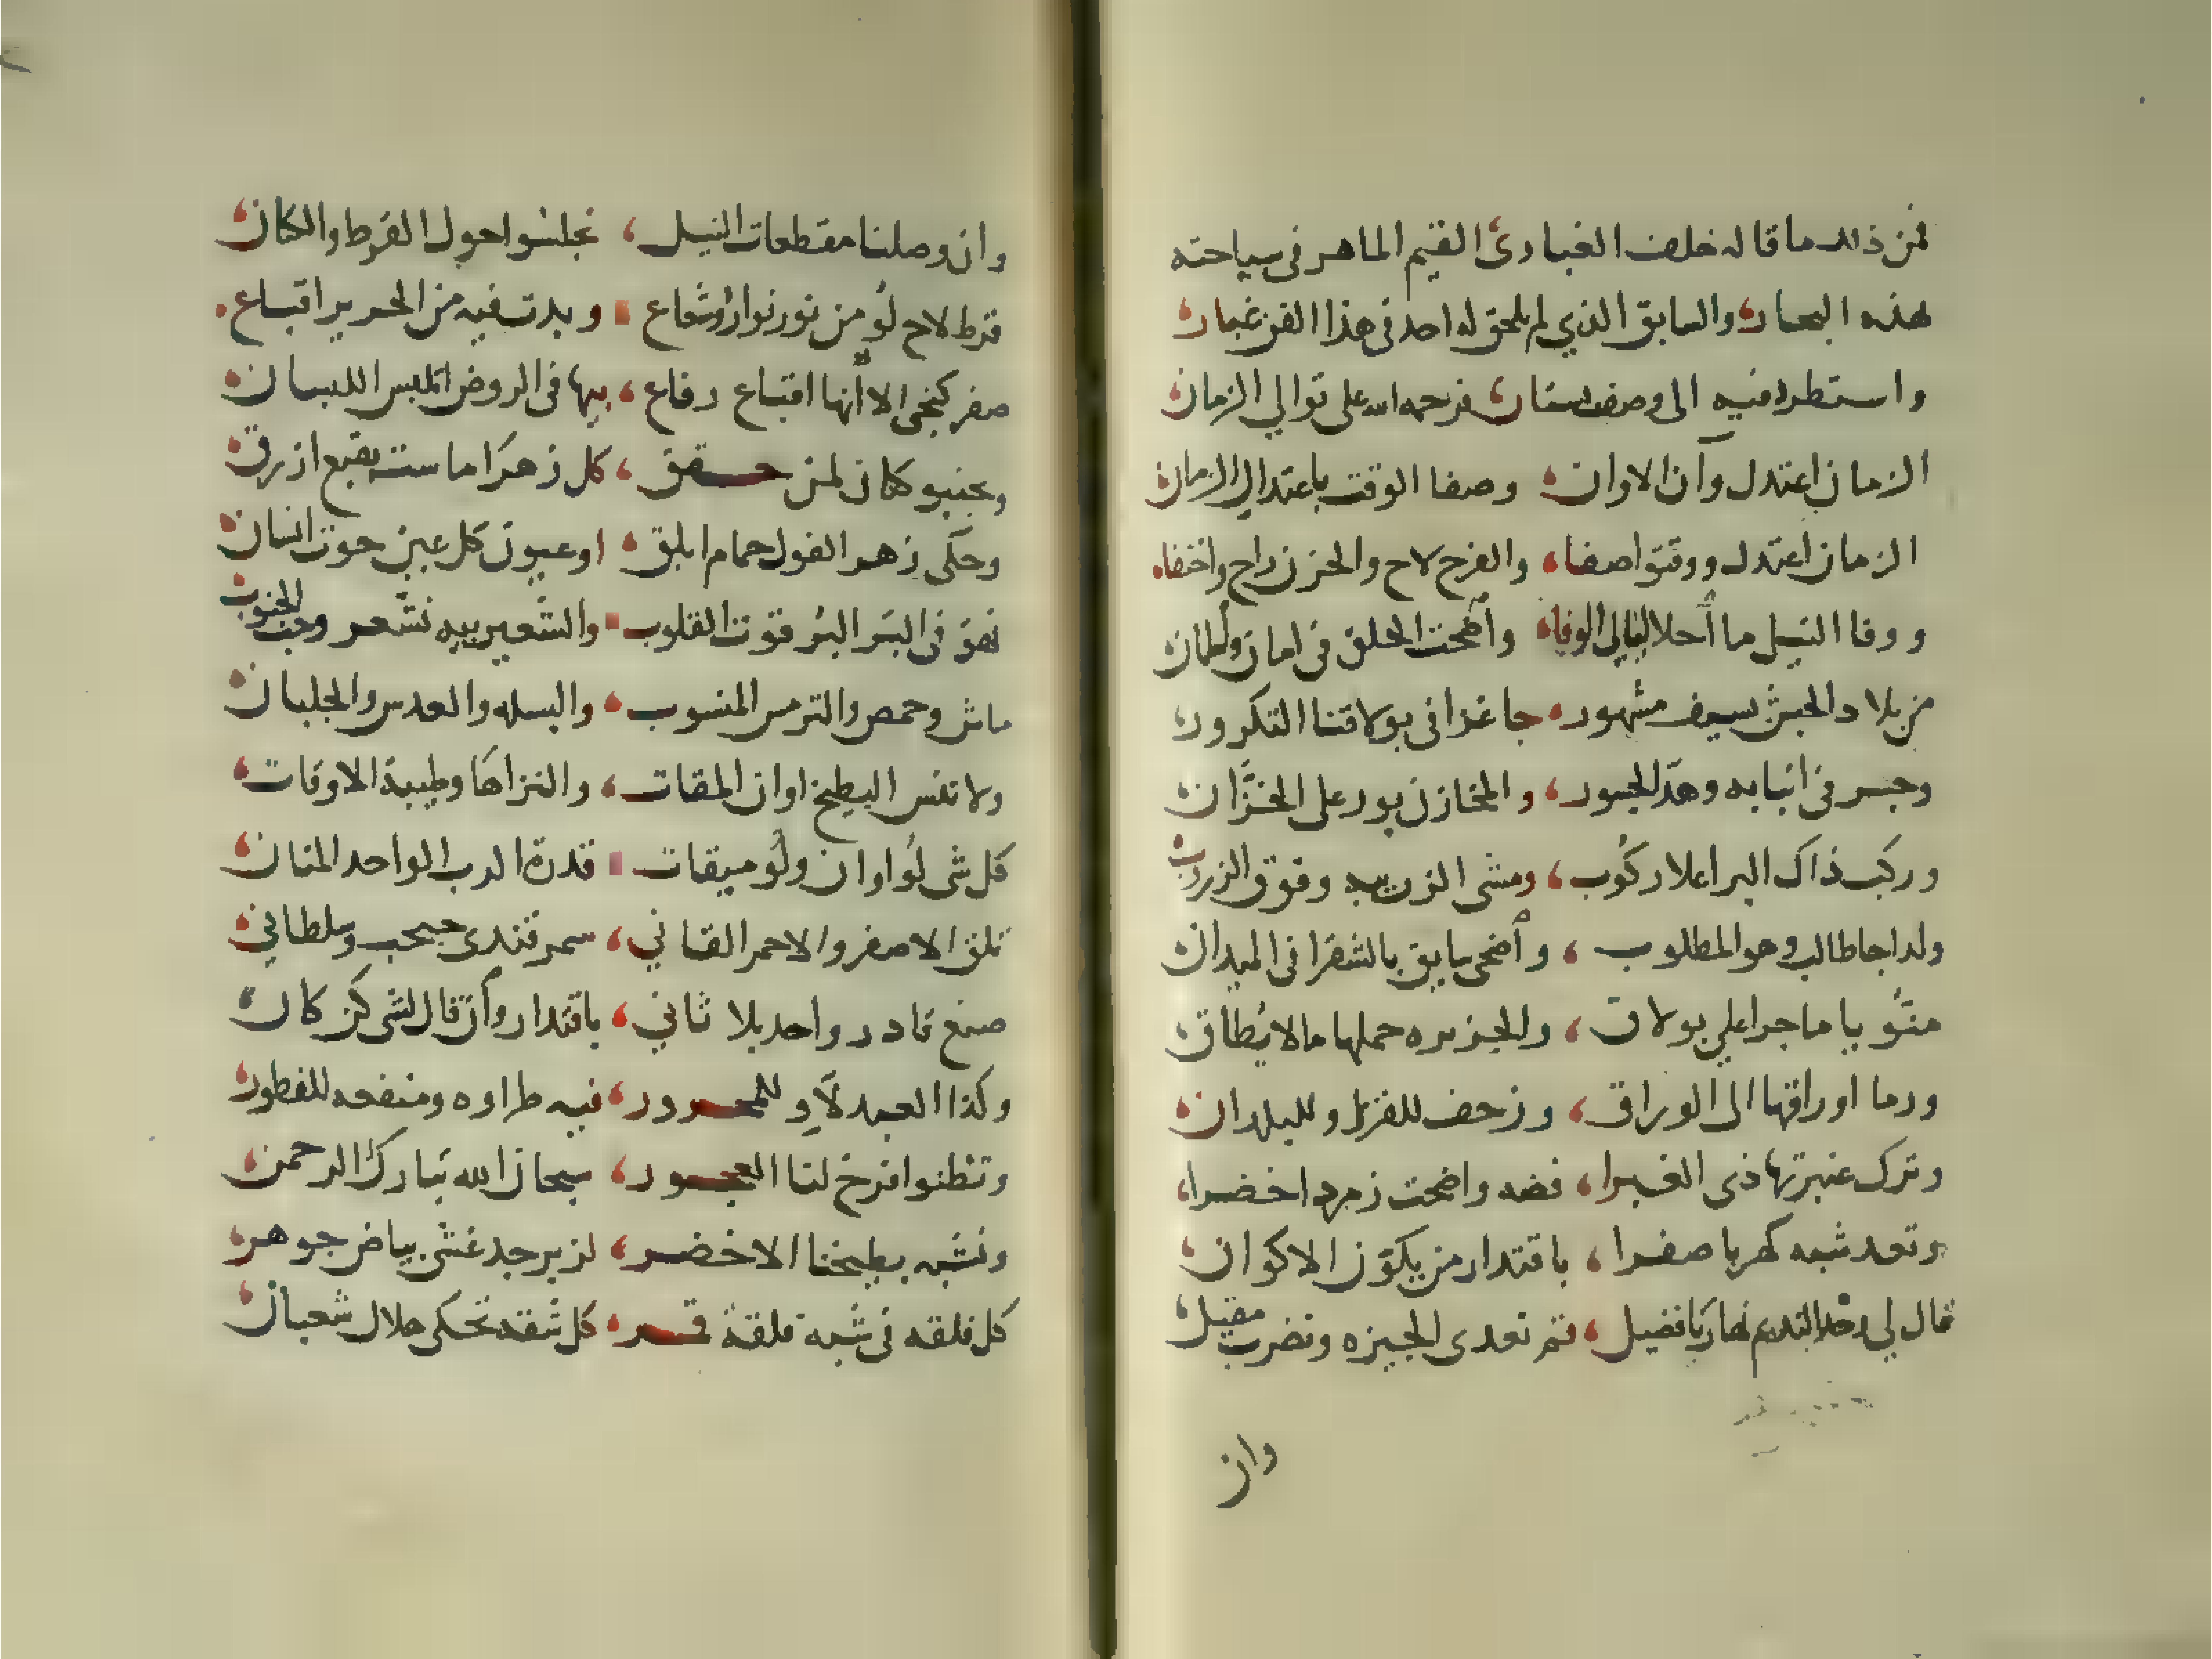 فمن ذلك ما قاله خلف الغبارئ القيم الماهر فى سياحته
هذه البحار والسابق الذي لم يلحق له احد فى هذا الفن غبار
واستطرد فيه الى وصف بستان فرحمه الله على توالي الزمان
الزمان اعتدل وآن الاوان وصفا الوقت باعتدال الزمان
الزمان اعتدل ووقتو اصفا، والفرح لاح والحزن راح واختفا
ووفا النيل ما أحلا ليالي الوفا وأضحت الخلق فى امان وأمان
من بلاد الحبش بسيف مشهور جا غدا فى بولاقنا التكرور
وجسر فى انيابه وهدّ الجسور، والمخازن بور على الخزّان
وركب ذاك البر اعلا ركُوب، ومشى الزربيه وفوق الزروب
ولدا جا طالب وهو المطلوب، وأضحى سابق بالشقرا فى الميدان
منّو يا ما جرا علي بولاق، والجزيره حملها ما لا يُطاق
ورما اوراقها الى الوراق، وزحف للقرط وللبلدان
وترك عنبرتها ذى الغبرا، فضه واضحت زمرد اخضرا،
وتعد شبه كهربا صفرا، باقتدار من يكوّن الاكوان
قال لي النديم نهار يا فضيل، قم نعدى الجيزه ونضرب مقيل
وان
وان وصلنا مقطعات النيل، نجلسوا حول القرط والكتان
قرط لاح لُو من نور نوارُو شعاع وبدت فيه من الحرير اقباع
صفر كنجى الا أنها اقباع رفاع، بيها فى الروض اتلبس اللبسان
وبجنبو كتان لمن حقق، كل زهرا ماست بقبع ازرق
وحكى زهر الفول حمام ابلق او عيون كل عين حوت انسان
فهو فى البَر البُر قوت القلوب والشعير بيه نشعر وحب الجنوب
ماش وحمص والترمس المنسوب والبسله والعدس والجلبان
ولا تنس البطيخ اوان المقات، والنزاها وطيبة الاوقات
كل شى لُو اوان ولُو ميقات قدرة الرب الواحد المنان
تلق الاصفر والاحمر القاني، سمرقندى حبحب وسلطاني
صنع قادر واحد بلا ثاني، باقتدار وأن قال لشى كن كان
وكذا العبدلاوِ للمحرور فيه طراوه ومنفعه للفطور
وتظنوا فرخ لنا العجور، سبحان الله تبارك الرحمن
ونشبه بطيخنا الاخضر، لزبرجد غشى بياض جوهر
كل فلقه فى شبه فلقة قمر، كل شقه تحكى هلال شعبان